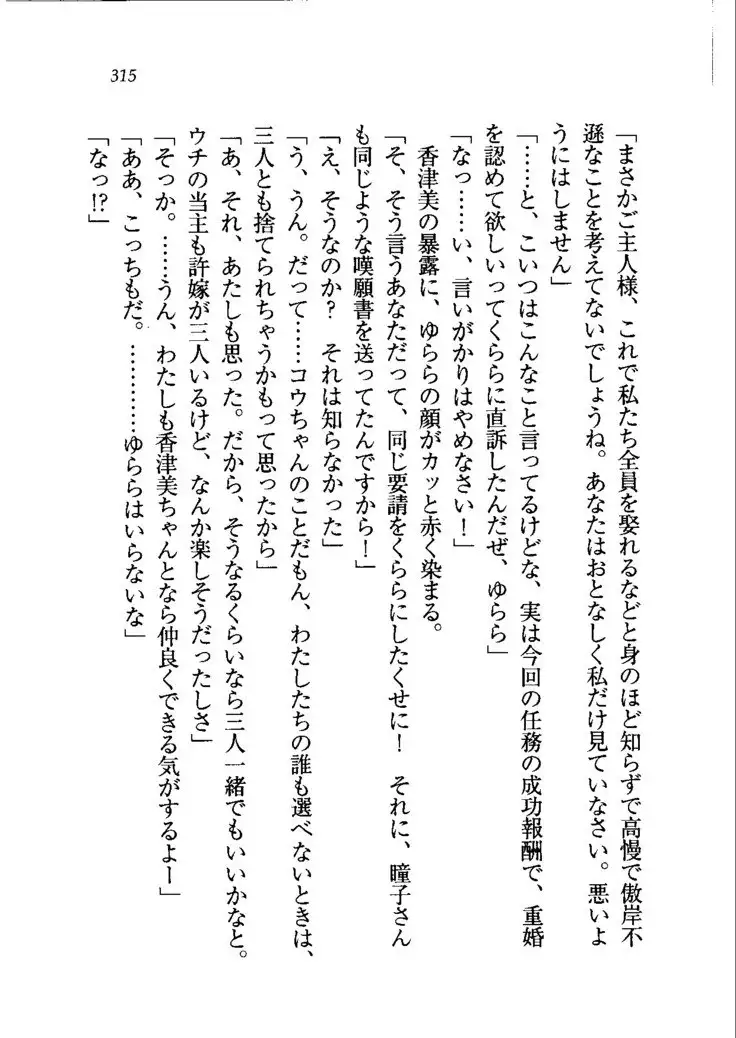 315
「まさかご主人様、これで私たち全員を娶れるなどと身のほど知らずで高慢で傲岸不
遜なことを考えてないでしょうね。あなたはおとなしく私だけ見ていなさい。悪いよ
うにはしません」
「……と、こいつはこんなこと言ってるけどな、実は今回の任務の成功報酬で、重婚
を認めて欲しいってくららに直訴したんだぜ、ゆらら」
「なっ……い、言いがかりはやめなさい！」
香津美の暴露に、ゆららの顔がカッと赤く染まる。
「そ、そう言うあなただって、同じ要請をくららにしたくせに！　それに、瞳子さん
も同じような嘆願書を送ってたんですから！」
「え、そうなのか？　それは知らなかった」
「う、うん。だって……コウちゃんのことだもん、わたしたちの誰も選べないときは、
三人とも捨てられちゃうかもって思ったから」
「あ、それ、あたしも思った。だから、そうなるくらいなら三人一緒でもいいかなと。
ウチの当主も許嫁が三人いるけど、なんか楽しそうだったしさ」
「そっか。……うん、わたしも香津美ちゃんとなら仲良くできる気がするよー」
「ああ、こっちもだ。…………ゆららはいらないな」
「なっ!?」